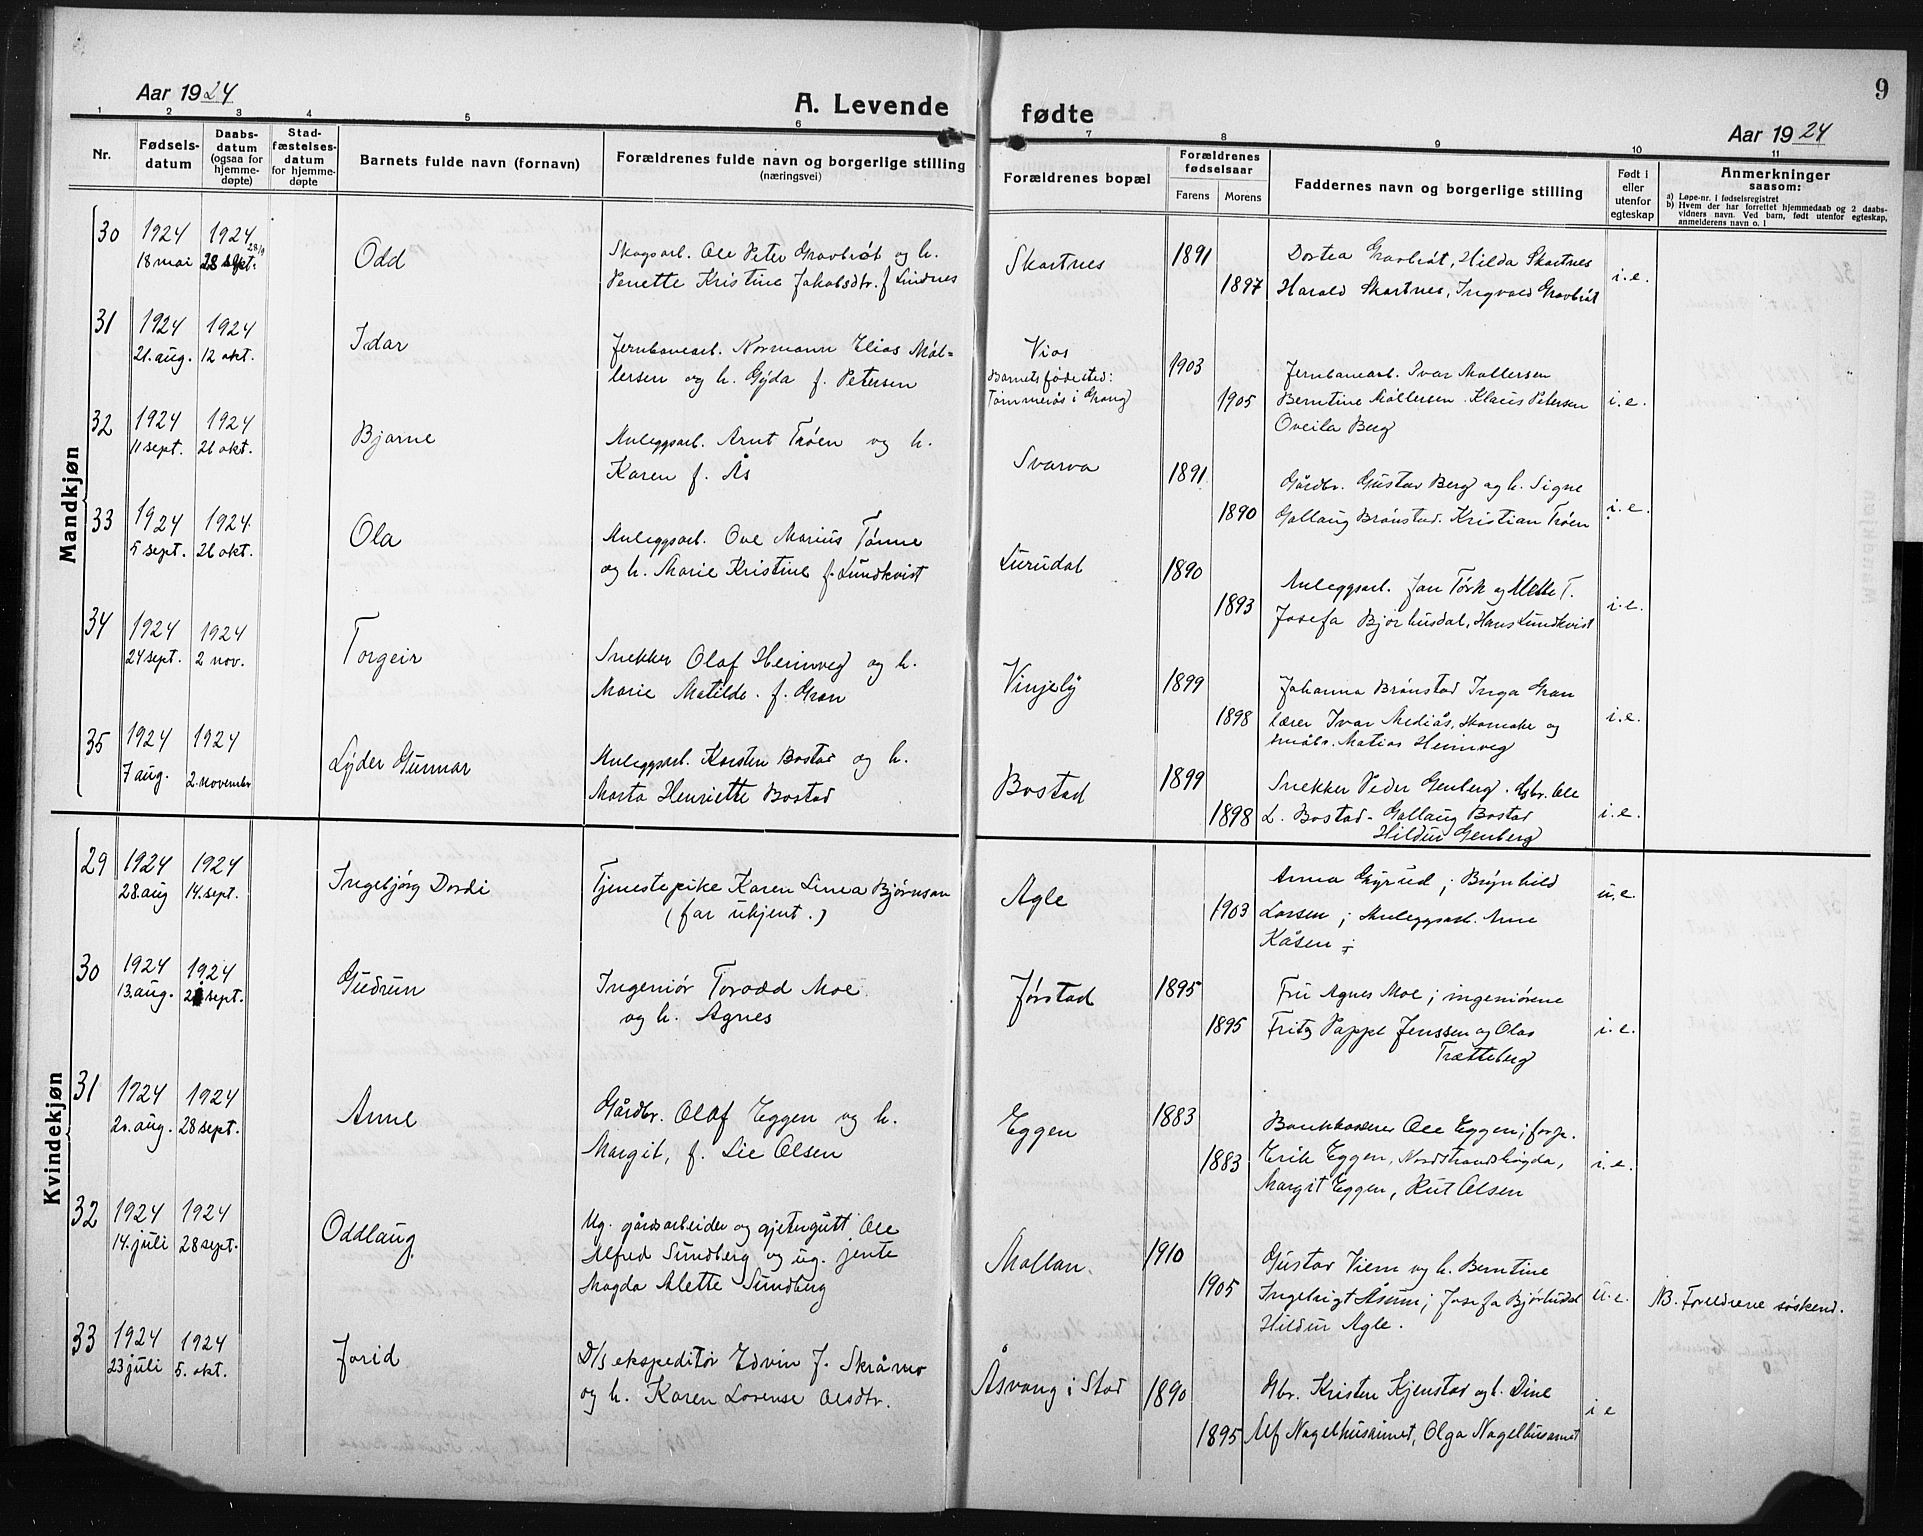 9
Aar 1924
A. Levende fødte
Aar 1924
1 2 3 4 5 6 7 8 9 10 11
Nr.
Fødsels-
datum
Daabs-
datum
(ogsaa for
hjemme-
døpte)
Stad-
fæstelses-
datum
for hjemme-
døpte
Barnets fulde navn (fornavn)
Forældrenes fulde navn og borgerlige stilling
(næringsvei)
Forældrenes bopæl
Forældrenes
fødselsaar
Farens Morens
Faddernes navn og borgerlige stilling
Født i
eller
utenfor
egteskap
Anmerkninger
saasom:
a) Løpe-nr. i fødselsregistret
b) Hvem der har forrettet hjemmedaab og 2 daabs-
vidners navn. Ved barn, født utenfor egteskap,
anmelderens navn o. l
Mandkjøn
30
1924
18 mai
1924
28/9
28 sept.
Odd
Skogsarb. Ole Peter Gravbrøt og h.
Penette Kristine Jakobsdtr. f. Lindnes
Skartnes
1891
1897
Dortea Gravbrøt, Hilda Skartnes
Harald Skartnes, Ingvald Gravbrøt
i.e.
31
1924
21. aug.
1924
12 okt.
Idar
Jernbanearb. Normann Elias Møl-
lersen og h. Gyda f. Petersen
Vios
Barnets fødested:
Tømmerås i Grong
1903
1905
Jernbanearb. Ivar Mollersen
Berntine Møllersen. Klaus Petersen
Oveila Berg
i.e.
32
1924
11 sept.
1924
26 okt.
Bjarne
Anleggsarb. Arnt Trøen og h.
Karen f. Ås
Svarva
1891
1890
Gårdbr. Gustav Berg og h. Signe
Gollaug Brønstad. Kristian Trøen
i.e.
33
1924
5 sept.
1924.
26 okt.
Ola
Anleggsarb. Ove Marius Tønne
og h. Marie Kristine f. Lundkvist
Lurudal
1890
1893
Anleggsarb. Jon Tørk og Mette T.
Josefa Bjørhusdal, Hans Lundkvist
i.e.
34
1924
24 sept.
1924
2 nov.
Torgeir
Snekker Olaf Heimveg og h.
Marie Matilde. f. Gran
Vinjely
1899
1898
Johanna Brønstad Inga Gran
lærer Ivar Mediås, Skomaker og
småbr. Matias Heimveg
i.e.
35
1924
7 aug.
1924
2. november
Lyder Gunnar
Anleggsarb. Karsten Bostad og h.
Marta Henriette Bostad
Bostad
1899
1898
Snekker Peder Genberg. Gbr. Ole
L. Bostad - Gollaug Bostad
Hildur Genberg
i.e.
Kvindekjøn
29
1924
28. aug
1924
14. sept.
Ingebjørg Dordi
Tjenestepike Karen Linea Bjørnsan
(far ukjent.)
Agle
1903
Anna Gyrud; Brynhild
Larsen; Anleggsarb. Arne
Kåsen
u.e.
30
1924
13. aug.
1924
21 sept.
Gudrun
Ingeniør Toradd Moe
og h. Agnes
Jørstad
1895
1895
Fru Agnes Moe; ingeniørene
Fritz Pappe Jenssen og Olav
Trætteberg
i.e.
31
1924
20. aug.
1924
28 sept.
Anne
Gårdbr. Olaf Eggen og h.
Margit, f. Lie Olsen
Eggen
1883
1883
Bankkaserer Ole Eggen; forp.
Erik Eggen, Nordstrandshøgda,
Margit Eggen, Rut Olsen
i.e.
32
1924
14. juli
1924
28 sept.
Oddlaug
Ug. gårdsarbeider og gjetergutt Ole
Alfred Sundberg og ug. jente
Magda Alette Sundberg
Mollan.
1910
1905
Gustav Viem og h. Berntine
Ingebrigt Åsum; Josefa Bjørhusdal
Hildur Agle.
u.e.
NB. Foreldrene søskend.
33
1924
23 juli
1924
5. okt.
Jorid
D/s ekspeditør Edvin J. Skråmo
og h. Karen Lorense Olsdtr.
Åsvang i Stod
1890
1895
Gbr. Kristen Kjenstad og h. Dine
Alf Nagelhusaunet, Olga Nagelhusaunet
i e